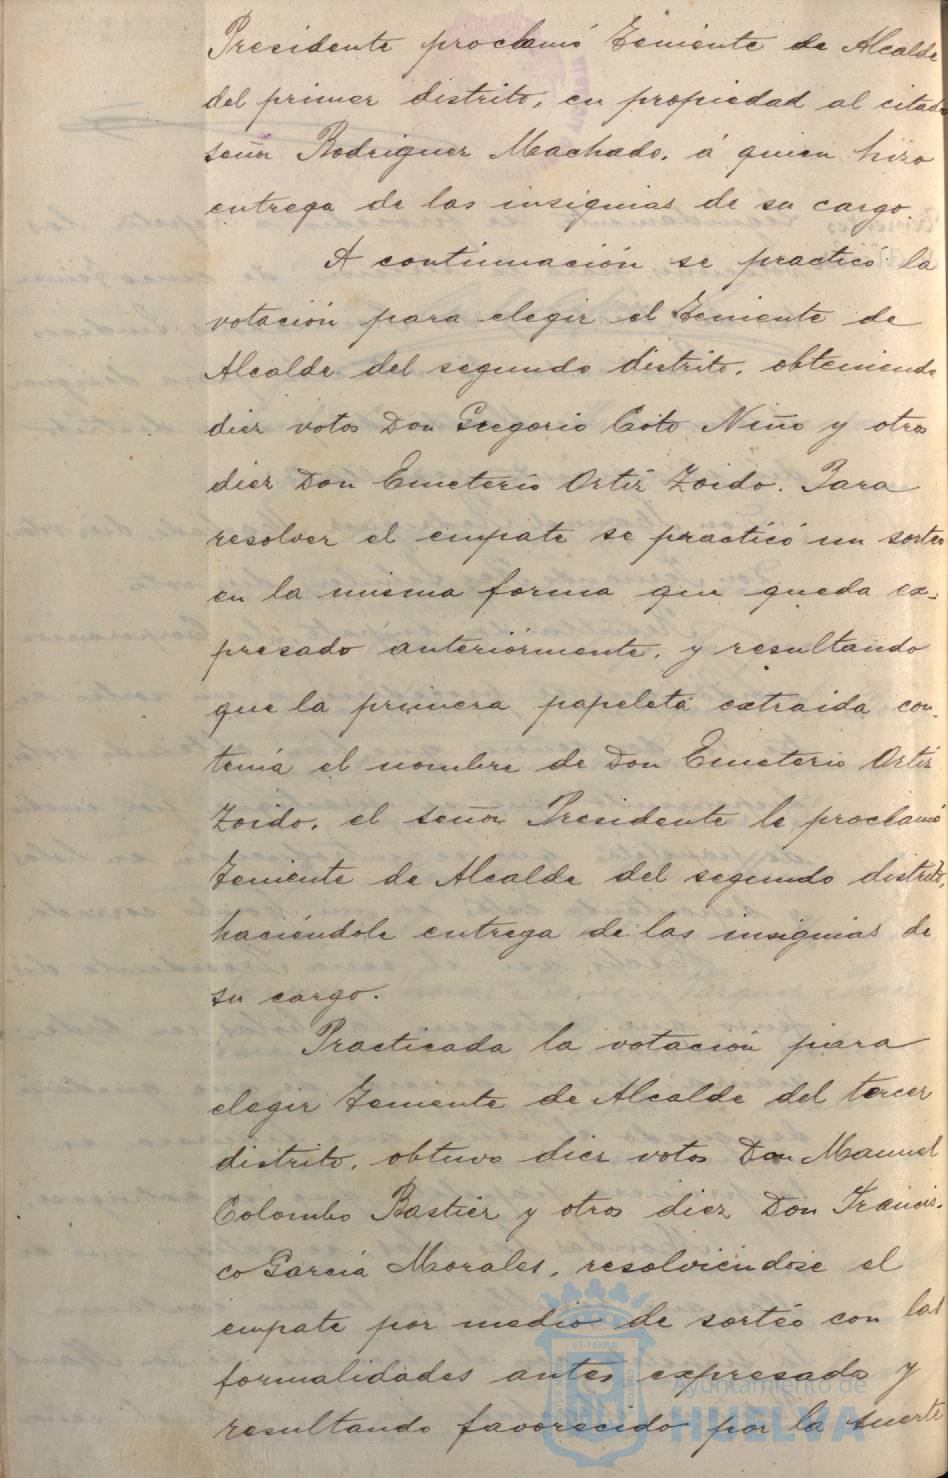 Presidente proclamó Teniente de Alcalde
del primer distrito, en propiedad al citado
señor Rodriguez Machado, á quien hizo
entrega de las insignias de su cargo.
A continuación se practicó la
votación para elegir el Teniente de
Alcalde del segundo distrito, obteniendo
diez votos Don Gregorio Coto Niño y otros
diez Don Emeterio Ortiz Zoido. Para
resolver el empate se practicó un sorteo
en la misma forma que queda ex-
presado anteriormente, y resultando
que la primera papeleta extraida con-
tenía el nombre de Don Emeterio Ortiz
Zoido, el señor Presidente le proclamó
Teniente de Alcalde del segundo distrito,
haciéndole entrega de las insignias de
su cargo.
Practicada la votación para
elegir Teniente de Alcalde del tercer
distrito, obtuvo diez votos Don Manuel
Colombo Bastier y otros diez Don Francis-
co García Morales, resolviéndose el
empate por medio de sorteo con las
formalidades antes expresado y
resultando favorecido por la suerte
Ayuntamiento de
HUELVA